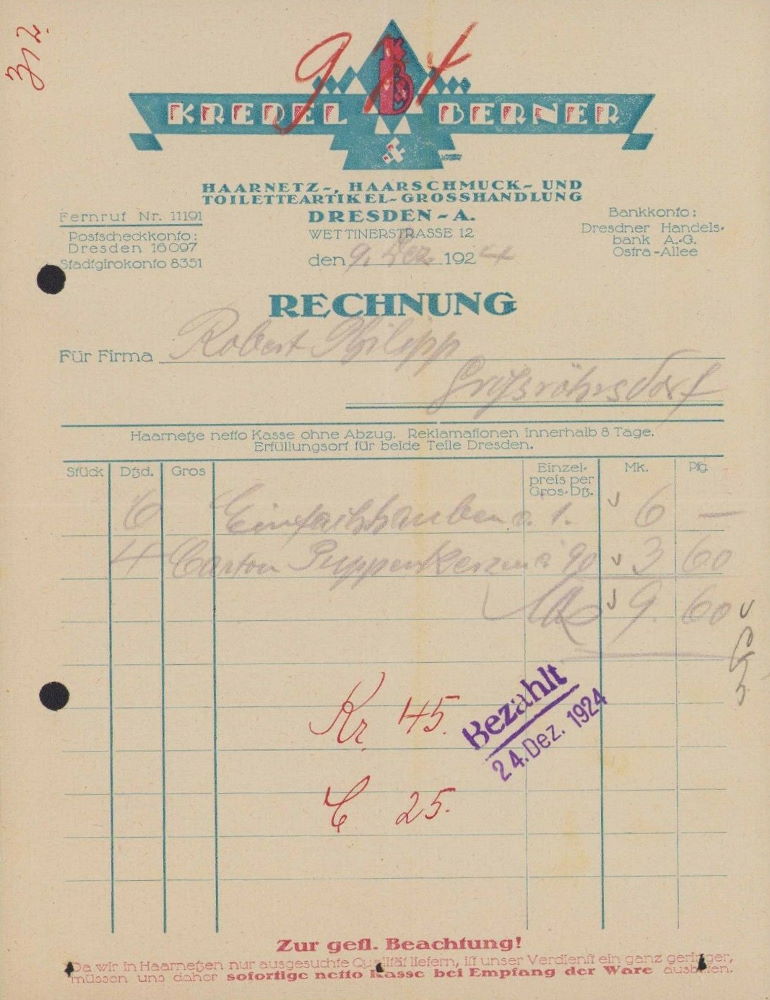 312.
KREPEL & BERNER
HAARNETZ-, HAARSCHMUCK- UND
TOILETTEARTIKEL-GROSSHANDLUNG
DRESDEN-A.
WETTINERSTRASSE 12
Fernruf Nr. 11191
Postscheckkonto:
Dresden 16097
Stadtgirokonto 8351
Bankkonto:
Dresdner Handels-
bank A.-G.
Ostra-Allee
den 9. Dez. 1924
RECHNUNG
Für Firma Robert Philipp
Großröhrsdorf
Haarnetze netto Kasse ohne Abzug. Reklamationen innerhalb 8 Tage.
Erfüllungsort für beide Teile Dresden.
Stück Dtzd. Gros Einzel-preis per Gros-Dtz. Mk. Pfg.
6 Einfachhauben a 1. 6 —
4 Carton Puppenkerzen à 90 3 60
9. 60
Kr. 45.
C 25.
Bezahlt
24. Dez. 1924
Zur gefl. Beachtung!
Da wir in Haarnetzen nur ausgesuchte Qualität liefern, ist unser Verdienst ein ganz geringer,
müssen uns daher sofortige netto Kasse bei Empfang der Ware ausbitten.